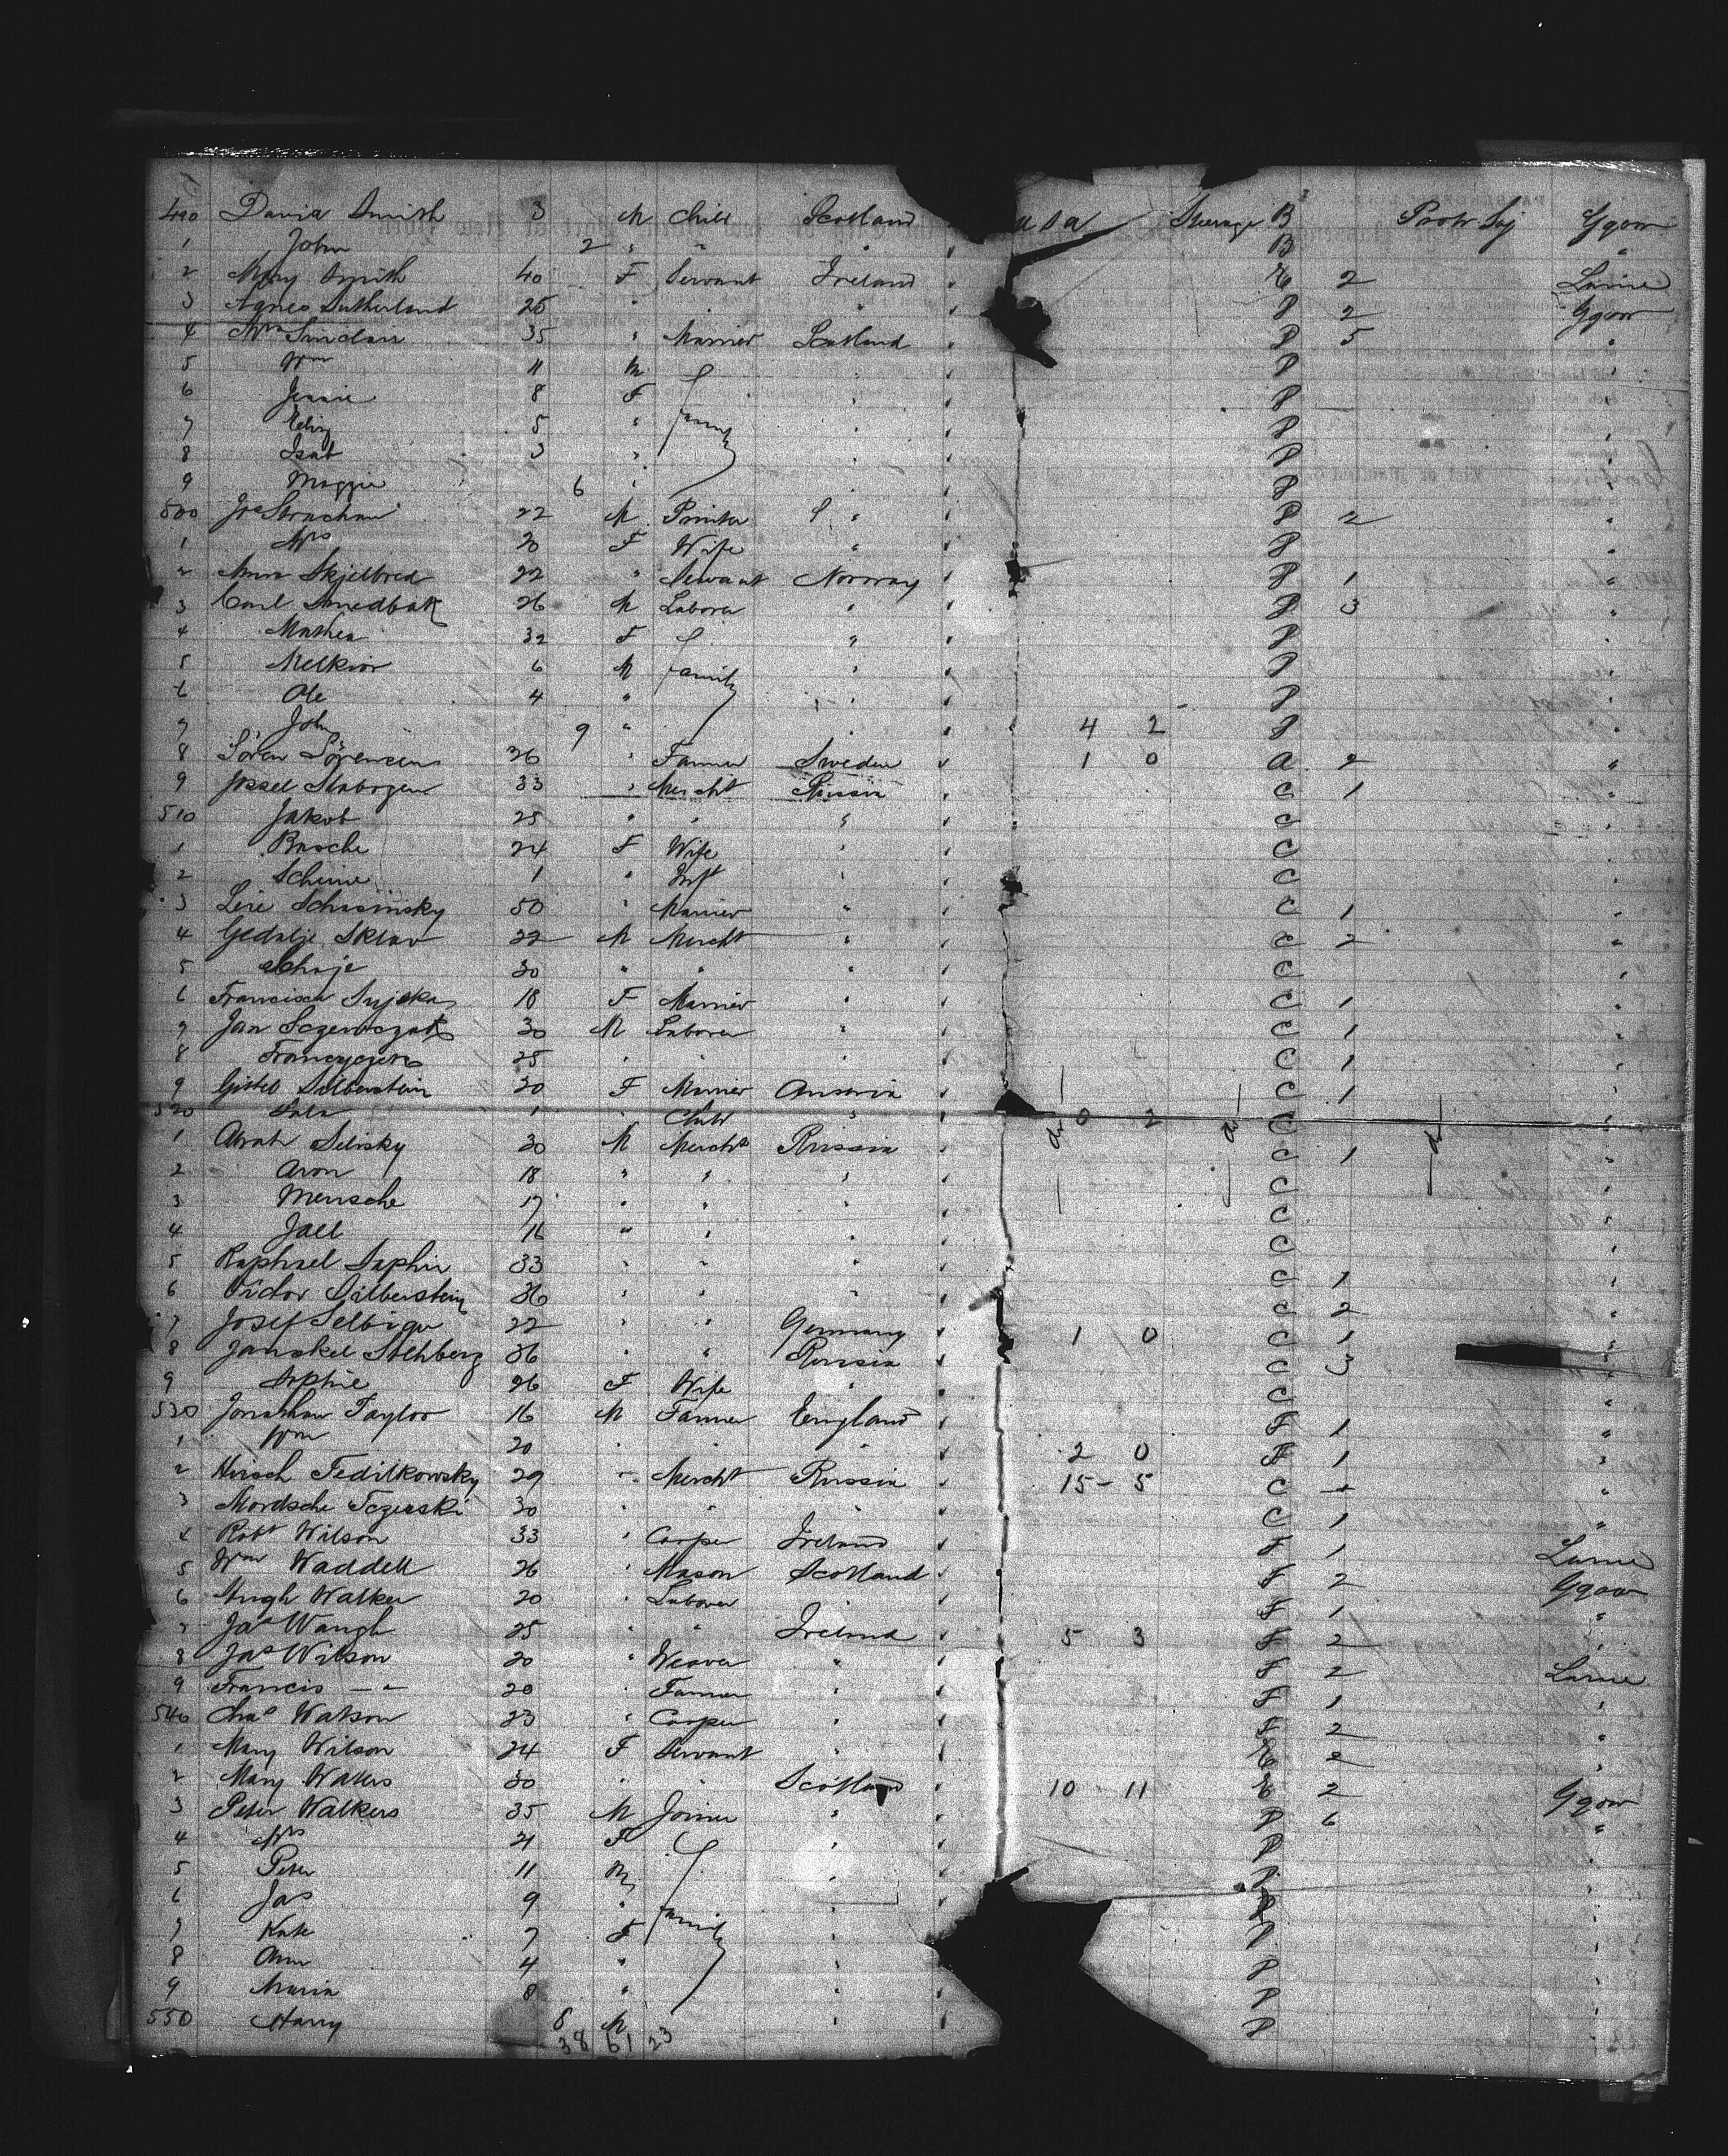 490 David Smith 3 M Child Scotland USA Steerage B Protr Soj Ggow
1 John 2 " " B "
2 Mary Smith 40 F Servant Ireland E 2 Larne
3 Agnes Sutherland 25 " " " P 2 Ggow
4 Mrs Sinclair 35 " Married Scotland P 5 "
5 Wm 11 M " P "
6 Jessie 8 F " P "
7 Eliz 5 " family " P "
8 Isab 3 " " P "
9 Maggie 6 " " P "
500 Jas Strachan 22 M Printer " P 2 "
1 Mrs 20 F Wife " P "
2 Anna Skjelbred 22 " Servant Norway P 1 "
3 Carl Smedbak 26 M Laborer " P 3 "
4 Mathea 32 F " P "
5 Melkior 6 M family " P "
6 Ole 4 " " P "
7 John 9 " 4 2 P "
8 Sören Sörensen 36 " Farmer Sweden 1 0 A 2 "
9 Jossel Slabozen 33 " Mercht Russia C 1 "
510 Jakob 25 " " " C "
1 Basche 24 F Wife " C "
2 Scheine 1 " Inft " C "
3 Leie Schasinsky 50 " Married " C 1 "
4 Gedalje Sklar 22 M Mercht " C 2 "
5 Schaje 30 " " " C "
6 Francisca Sujska 18 F Married " C 1 "
7 Jan Sczewczak 30 M Laborer " C 1 "
8 25 " " " C 1 "
9 Gittel Silberstein 20 F Married Austria C 1 "
520 Sala 1 " Child " 0 2 C "
1 Abrah Selisky 30 M Mercht Russia do do C 1 do "
2 Aron 18 " " " C "
3 Mensche 17 " " " C "
4 Jael 16 " " " C "
5 Raphael Saphir 33 " " " C 1 "
6 Victor Silberstein 36 " " " C 2 "
7 Josef Selbiger 22 " " Germany 1 0 C 1 "
8 Janskel Stehberg 36 " " Russia C 3 "
9 Sophie 26 F Wife " C "
530 Jonathan Taylor 16 M Farmer England F 1 "
1 Wm 20 " " " 2 0 F 1 "
2 Hirsch Fedilkowsky 29 " Mercht Russia 15 - 5 C "
3 Mordsche Tczerski 30 " " " C 1 "
4 Robt Wilson 33 " Cooper Ireland F 1 Larne
5 Wm Waddell 26 " Mason Scotland F 2 Ggow
6 Hugh Walker 20 " Laborer F 1 "
7 Jas Waugh 25 " " Ireland 5 3 F 2 "
8 Jas Wilson 20 " Weaver " F 2 Larne
9 Francis — " 20 " Farmer " F 1 "
540 Chas Watson 23 " Cooper " F 2 "
1 Mary Wilson 24 F Servant " E 2 "
2 Mary Waters 30 " " Scotland 10 11 E 2 Ggow
3 Peter Walkers 35 M Joiner " P 6 "
4 Mrs 21 F " P
5 Peter 11 M " P
6 Jas 9 " " P
7 Kate 7 F family " P
8 Ann 4 " " P
9 Maria 8 " " P
550 Harry 8 M " P
38 61 23